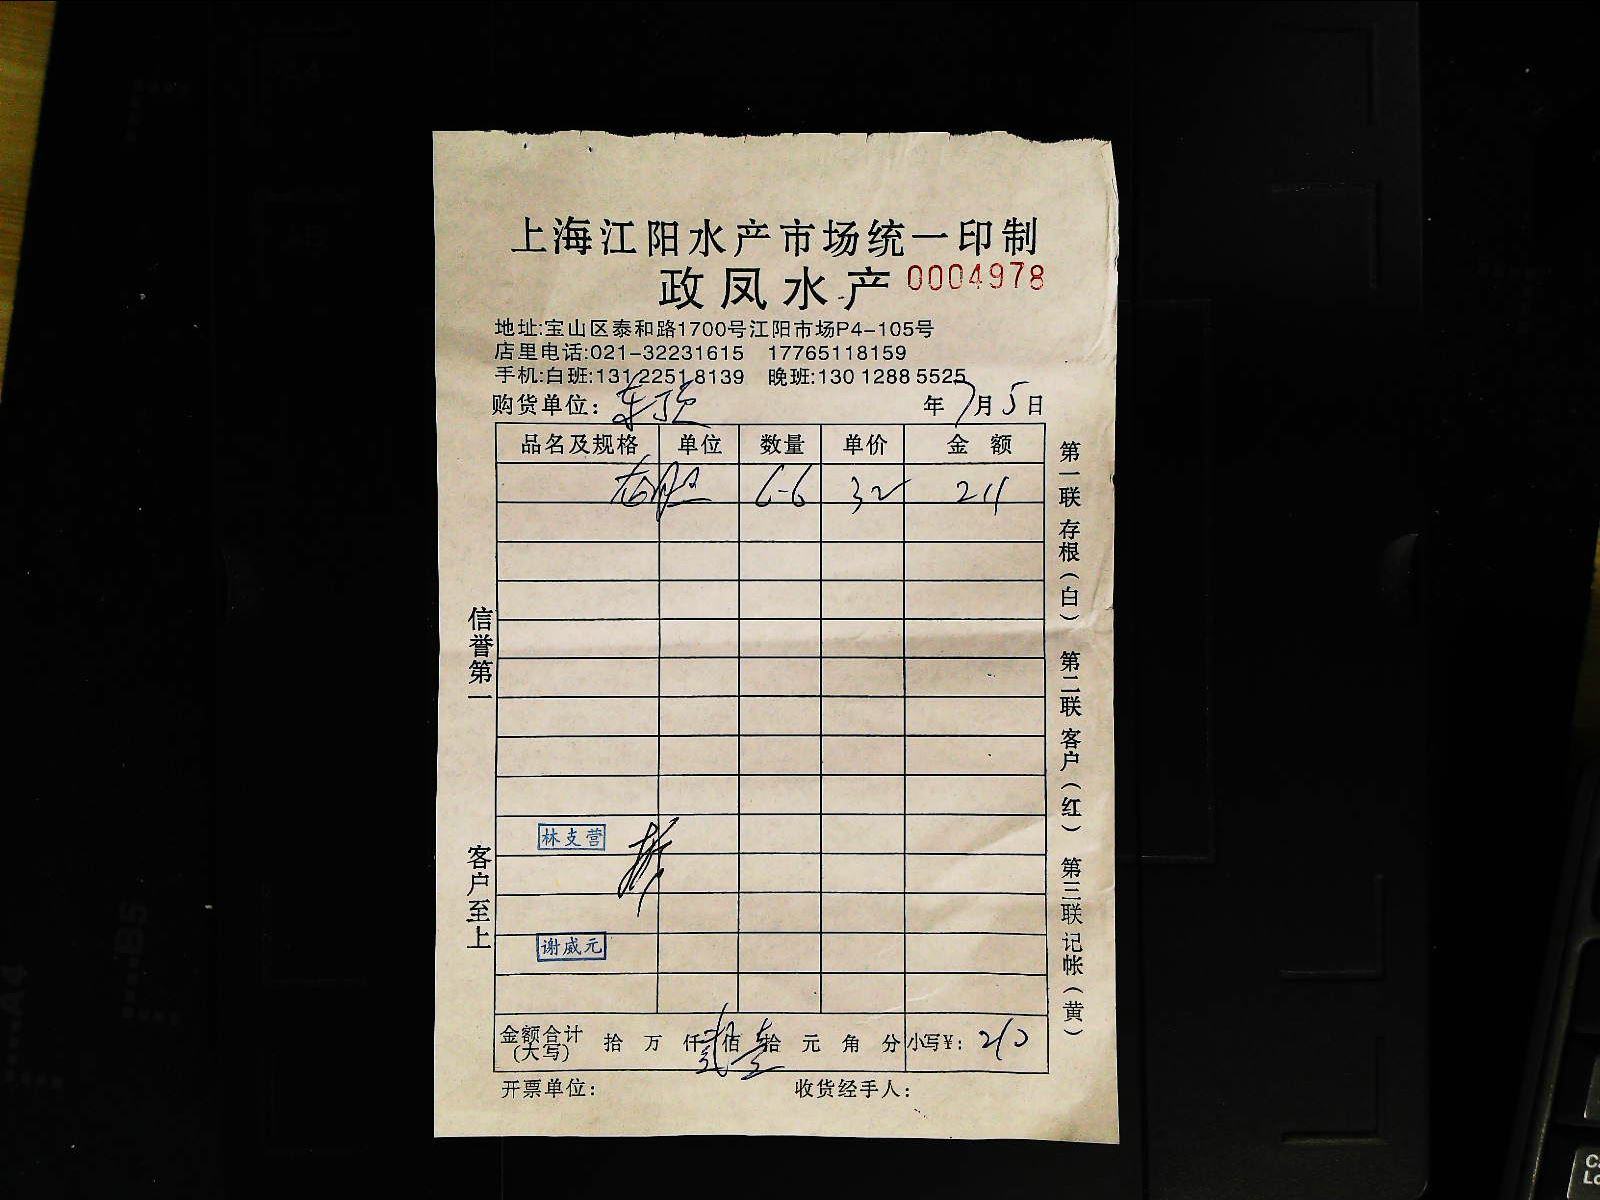 上海江阳水产市场统一印制
政凤水产 0004978
地址:宝山区泰和路1700号江阳市场P4-105号
店里电话:021-32231615 17765118159
手机:白班:131 2251 8139 晚班:130 1288 5525
购货单位: 年 7月5日
品名及规格 单位 数量 单价 金额
6-6 32 211
林支营
谢威元
金额合计(大写) 拾 万 仟 贰佰 壹拾 元 角 分 小写¥: 210
开票单位: 收货经手人:
信誉第一
客户至上
第一联 存根(白) 第二联 客户(红) 第三联 记帐(黄)
B5
A4